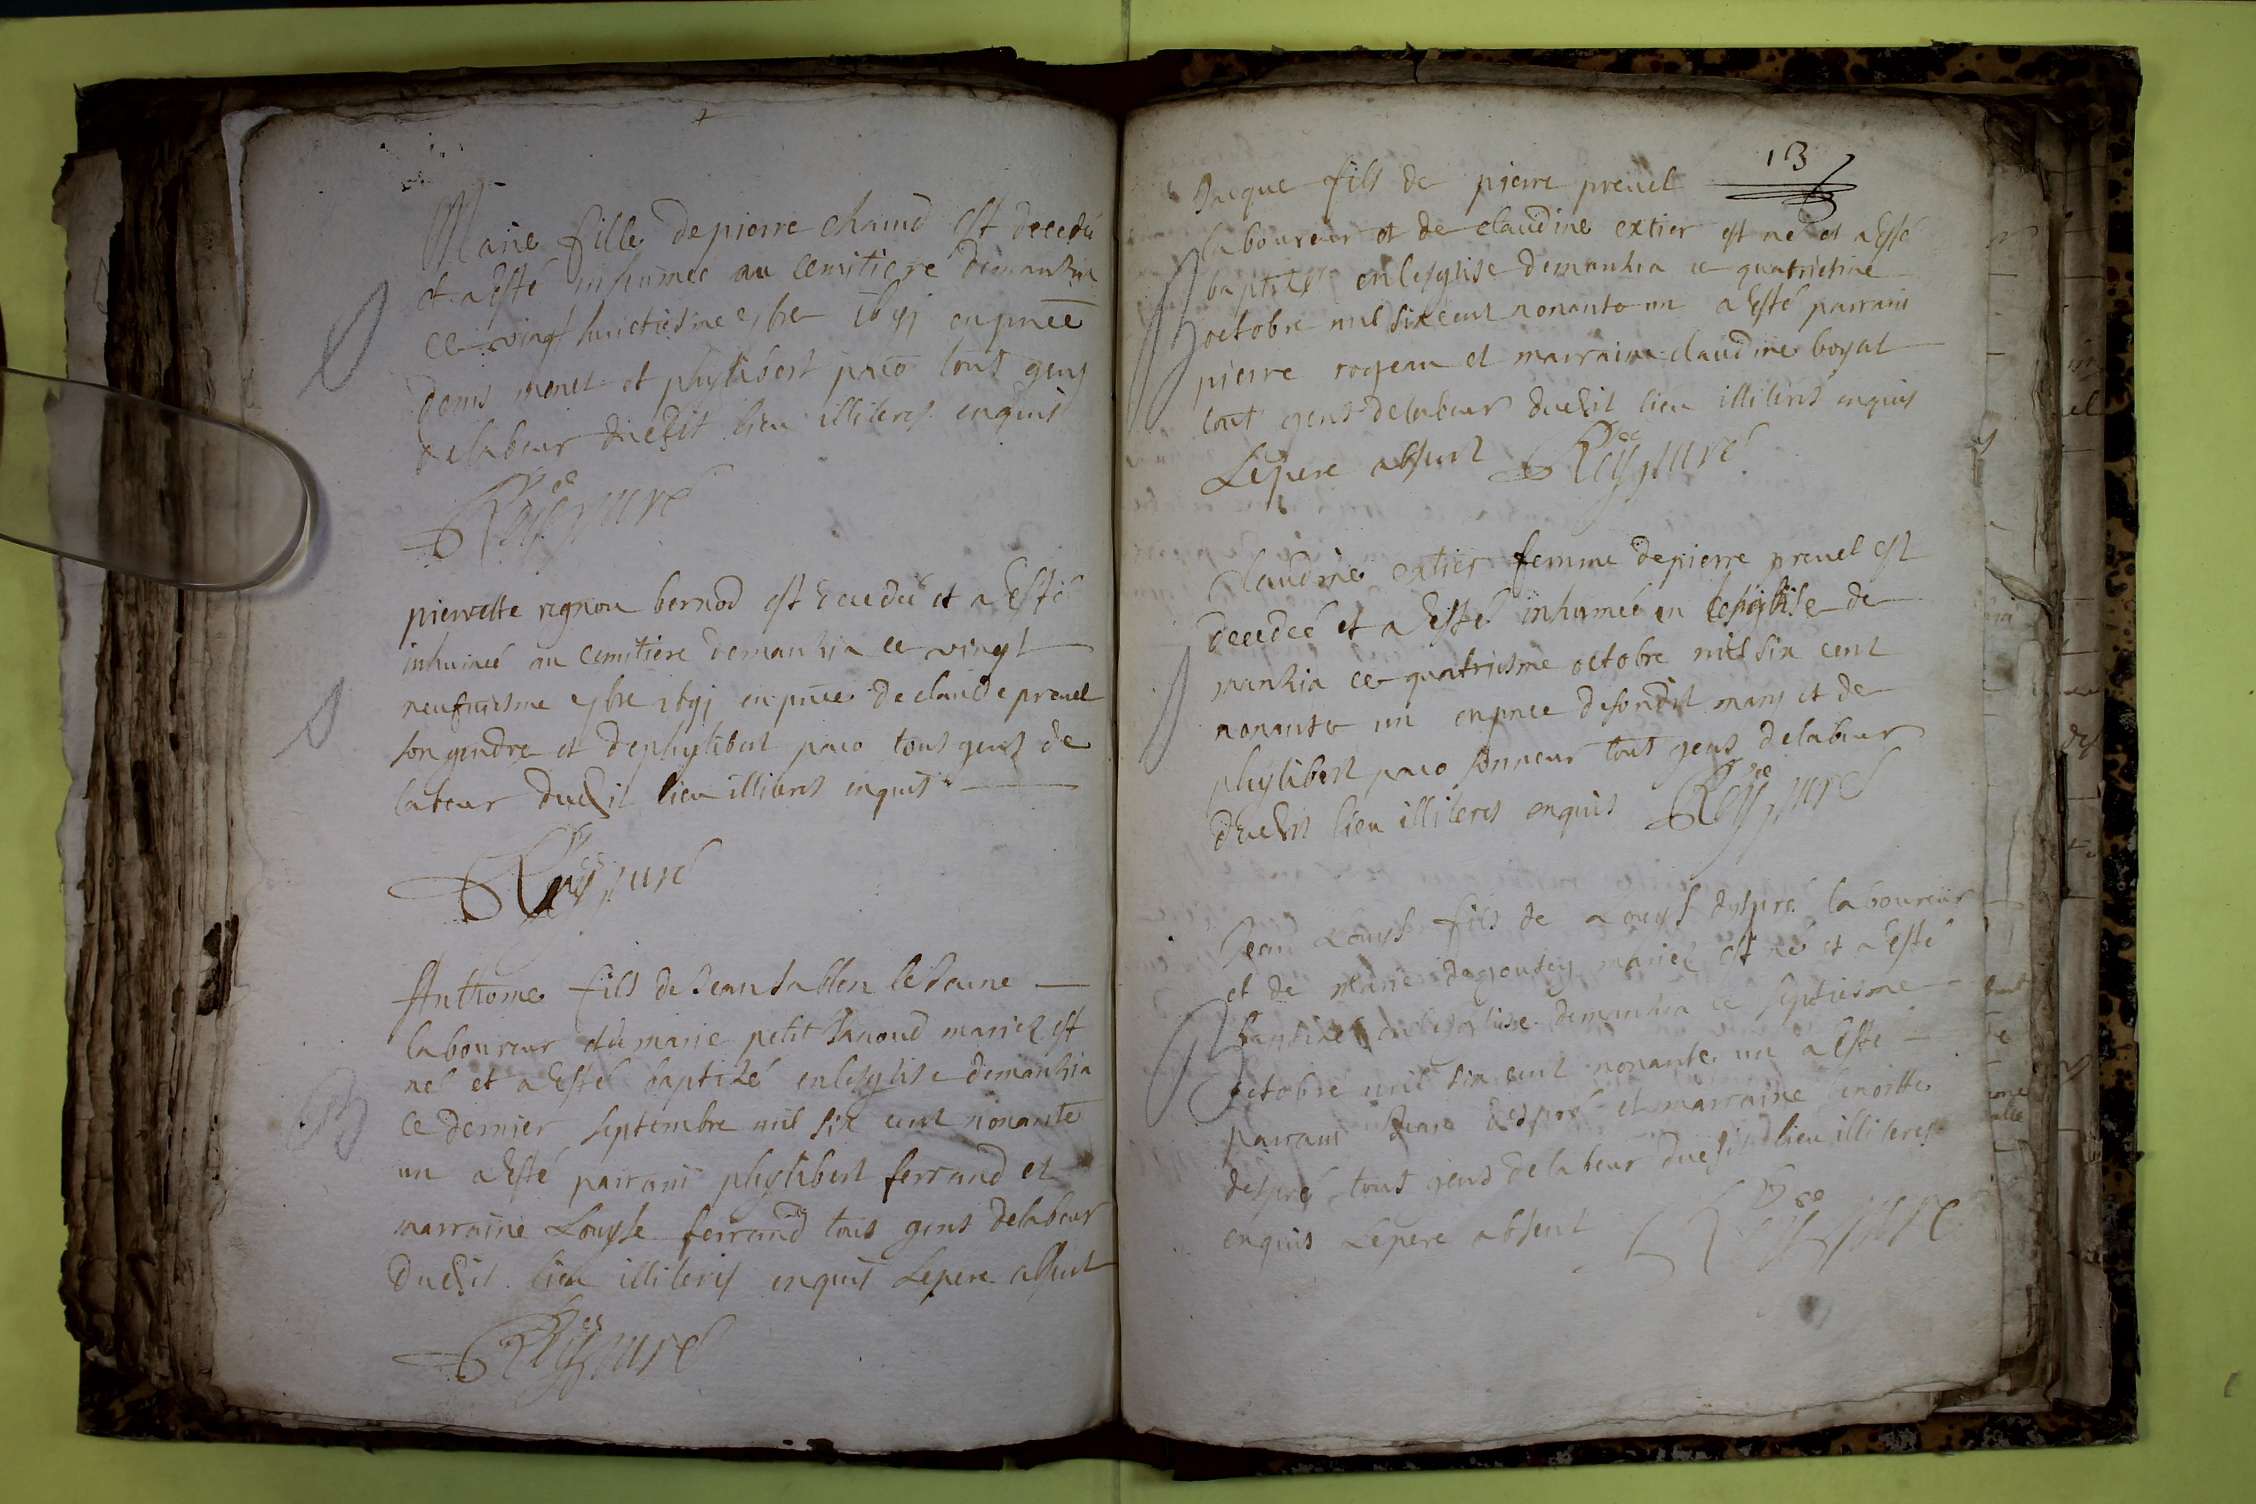 Marie fille de pierre chanud est decedée
et a esté inhumée au cemitiere demantzia
ce vingt huictiesme 7bre 1691 en pnce
denis monet et phylibert paco tous gens
de labeur duedit lieu illiteres enquis
Rey, curé
pierrette rognon bernod est decedée et a esté
inhumée au cemitiere demantzia ce vingt
neufuiesme 7bre 1691 en pnce de claude preuel
son gendre et de phylibert paco tous gens de
labeur duedit lieu illiteres enquis
Rey, curé
Anthoine fils de Jean sablon le Jeune
laboureur et de marie petit Janoud mariez est
né et a esté baptizé en lesglise demantzia
ce dernier septembre mil six cent nonante
un a esté parrain phylibert ferrand et
marraine Louyse ferrand tous gens delabeur
duedit lieu illiteres enquis Le pere absent
Rey, curé
13
Jacque fils de pierre preuel
laboureur et de claudine extier est né et a esté
baptizé en lesglise demantzia ce quatriesme
octobre mil six cent nonante un a esté parrain
pierre rogeau et marraine claudine boyat
tous gens delabeur duedit lieu illiteres enquis
Le pere absent Rey, curé
Claudine extier femme de pierre preuel est
decedée et a esté inhumée en lesglise de
mantzia ce quatriesme octobre mil six cent
nonante un en pnce desondit mary et de
phylibert paco sonneur tous gens delabeur
duedit lieu illiteres enquis Rey, curé
Jean Louys fils de Louys despré laboureur
et de marie mariez est né et a esté
baptizé en lesglise demantzia ce septiesme
octobre mil six cent nonante un a esté
parrain Jean despré et marraine benoitte
despré tous gens de labeur duedit lieu illiteres
enquis Le pere absent Rey, curé